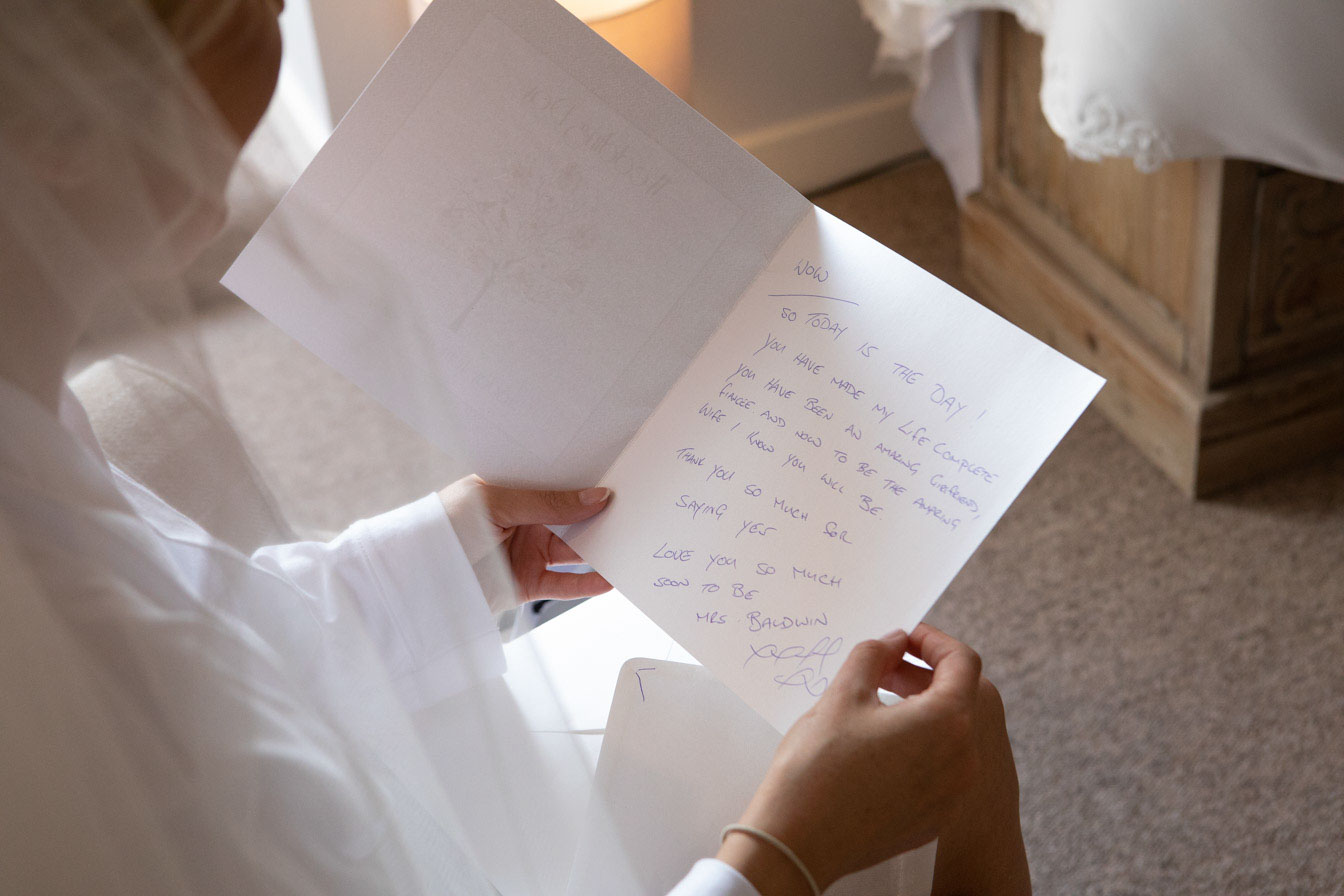 WOW
SO TODAY IS THE DAY!
YOU HAVE MADE MY LIFE COMPLETE
YOU HAVE BEEN AN AMAZING GIRLFRIEND,
FIANCÉE AND NOW TO BE THE AMAZING
WIFE I KNOW YOU WILL BE.
THANK YOU SO MUCH FOR
SAYING YES
LOVE YOU SO MUCH
SOON TO BE
MRS BALDWIN